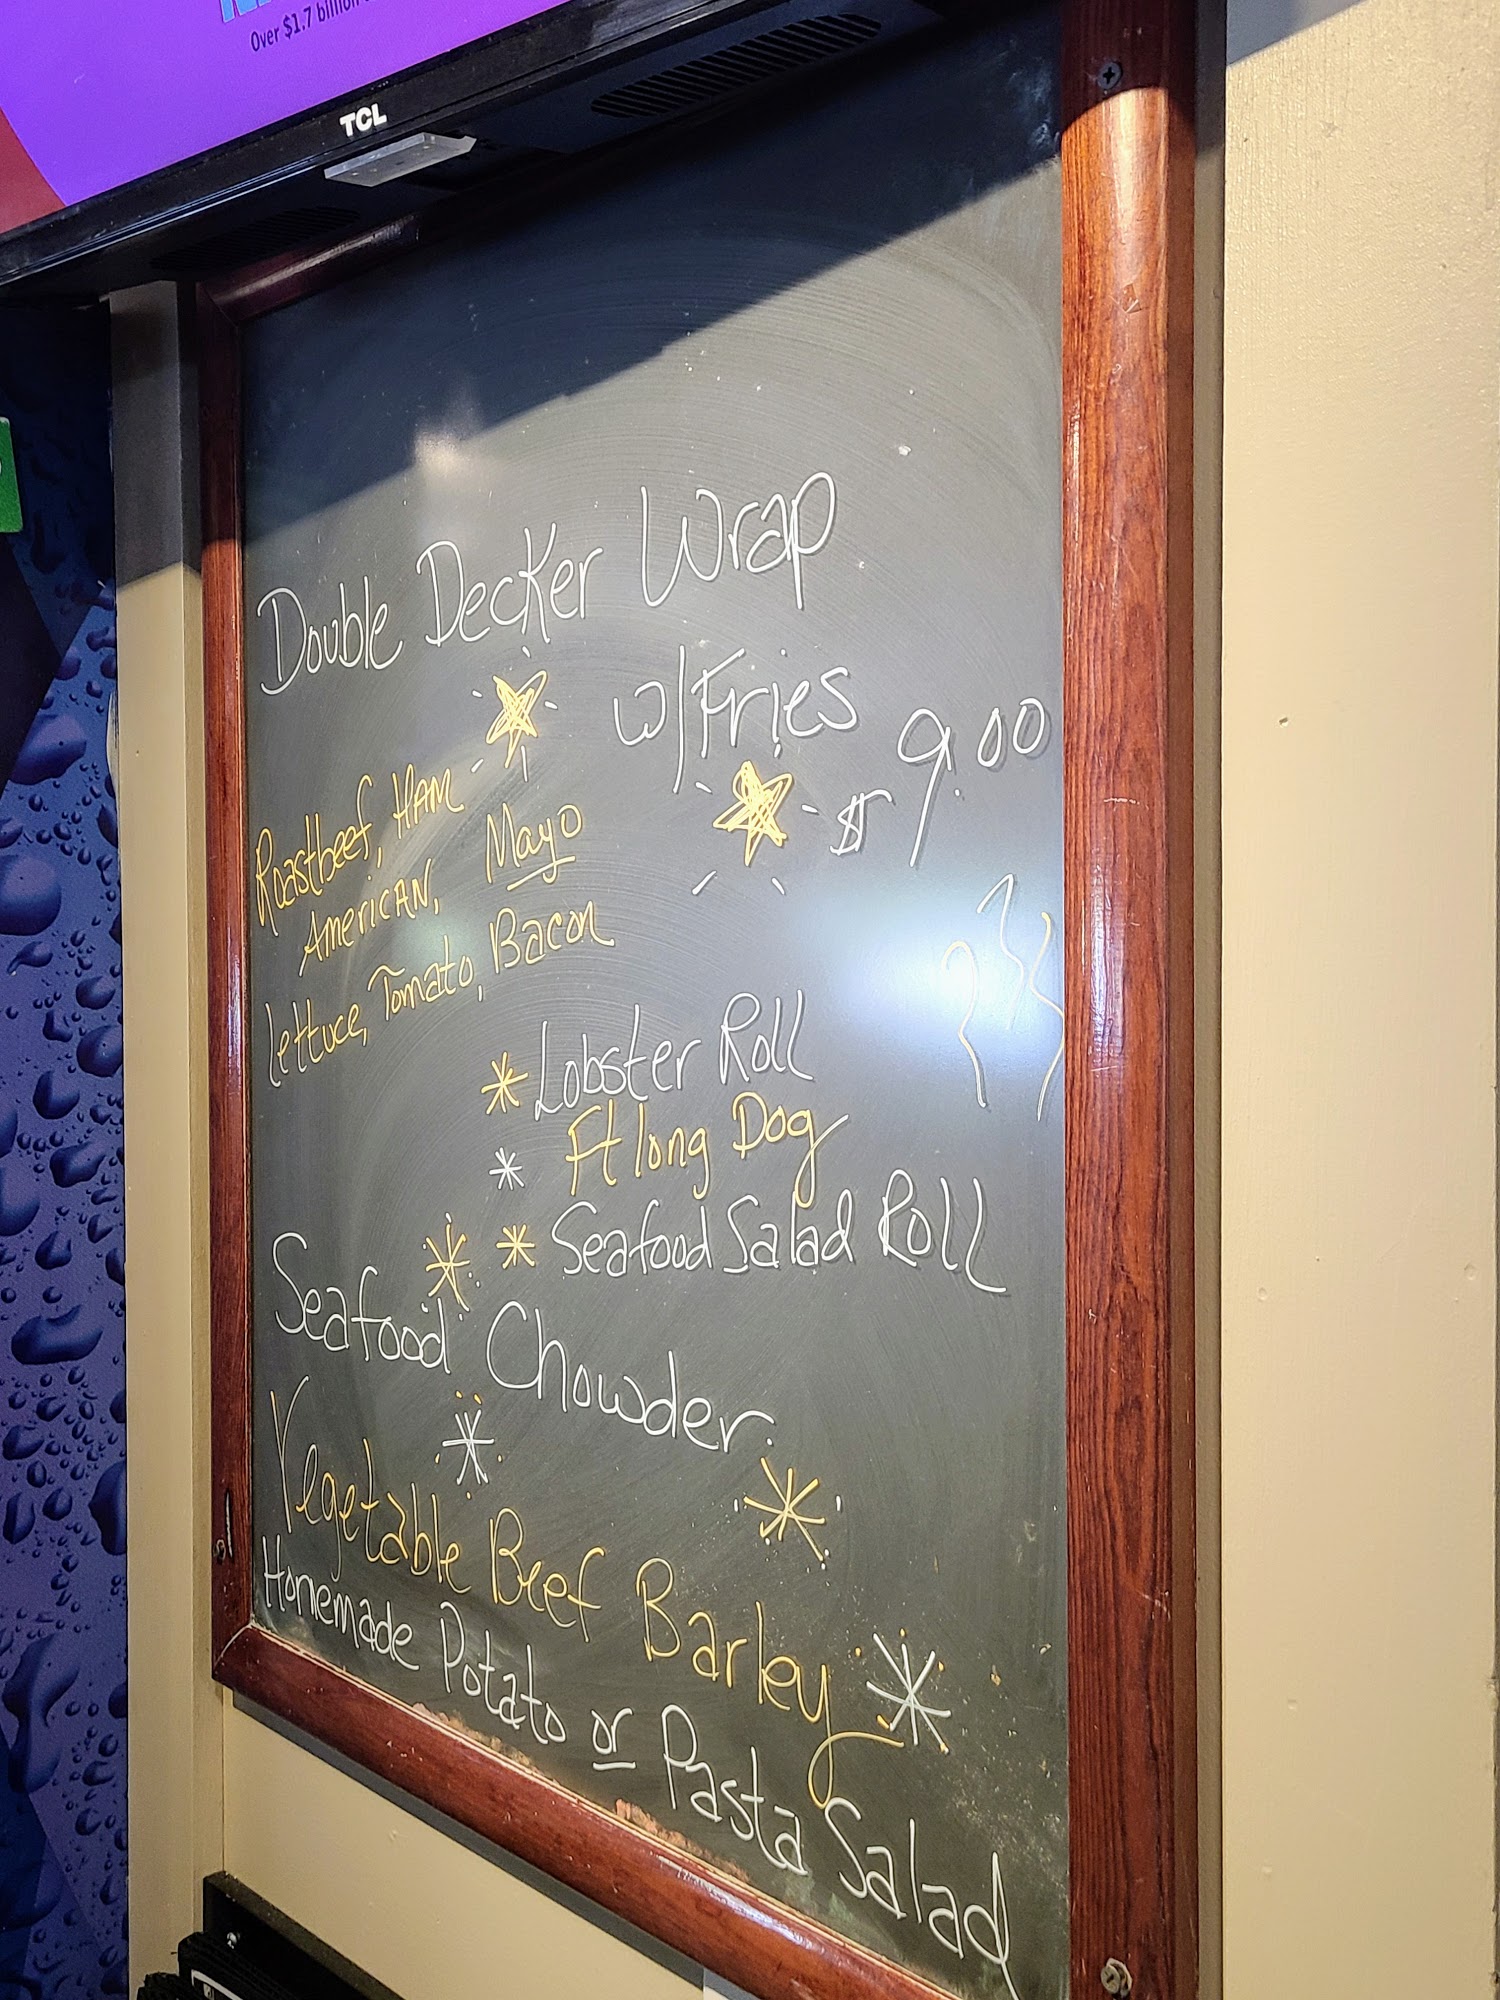 Over $1.7 billion
TCL
Double Decker Wrap
w/Fries
$9.00
Roastbeef, HAM
AmericAN, Mayo
Lettuce, Tomato, Bacon
Lobster Roll
Ft long Dog
Seafood Salad Roll
Seafood Chowder
Vegetable Beef Barley
Homemade Potato or Pasta Salad